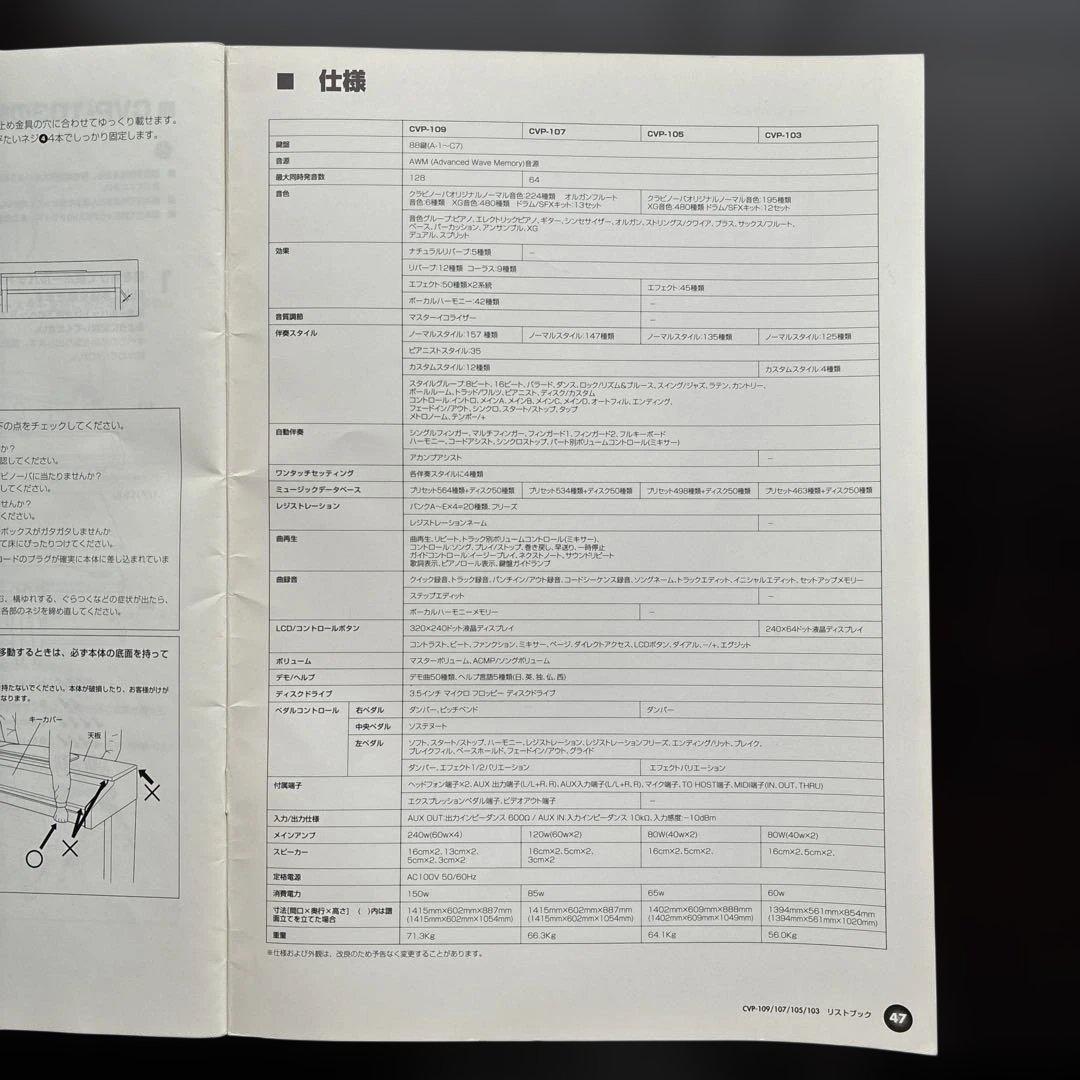 止め金具の穴に合わせてゆっくり載せます。
たいネジ❹4本でしっかり固定します。
下の点をチェックしてください。
か？
認してください。
ビノーバに当たりませんか？
してください。
せんか？
ください。
ボックスがガタガタしませんか
て床にぴったりつけてください。
コードのプラグが確実に本体に差し込まれていま
る、横ゆれする、ぐらつくなどの症状が出たら、
各部のネジを締め直してください。
移動するときは、必ず本体の底面を持って
持たないでください。本体が破損したり、お客様がけが
なります。
キーカバー
天板
■ 仕様
CVP-109 CVP-107 CVP-105 CVP-103
鍵盤 88鍵(A-1〜C7)
音源 AWM (Advanced Wave Memory)音源
最大同時発音数 128 64
音色 クラビノーバオリジナルノーマル音色:224種類 オルガンフルート クラビノーバオリジナルノーマル音色:195種類
音色:6種類 XG音色:480種類 ドラム/SFXキット:13セット XG音色:480種類 ドラム/SFXキット:12セット
音色グループ:ピアノ、エレクトリックピアノ、ギター、シンセサイザー、オルガン、ストリングス/クワイア、ブラス、サックス/フルート、
ベース、パーカッション、アンサンブル、XG
デュアル、スプリット
効果 ナチュラルリバーブ:5種類 −
リバーブ:12種類 コーラス:9種類
エフェクト:50種類×2系統 エフェクト:45種類
ボーカルハーモニー:42種類 −
音質調節 マスターイコライザー −
伴奏スタイル ノーマルスタイル:157 種類 ノーマルスタイル:147種類 ノーマルスタイル:135種類 ノーマルスタイル:125種類
ピアニストスタイル:35
カスタムスタイル:12種類 カスタムスタイル:4種類
スタイルグループ:8ビート、16ビート、バラード、ダンス、ロック/リズム&ブルース、スイング/ジャズ、ラテン、カントリー、
ボールルーム、トラッド/ワルツ、ピアニスト、ディスク/カスタム
コントロール:イントロ、メインA、メインB、メインC、メインD、オートフィル、エンディング、
フェードイン/アウト、シンクロ、スタート/ストップ、タップ
メトロノーム、テンポ−/+
自動伴奏 シングルフィンガー、マルチフィンガー、フィンガード1、フィンガード2、フルキーボード
ハーモニー、コードアシスト、シンクロストップ、パート別ボリュームコントロール(ミキサー)
アカンプアシスト −
ワンタッチセッティング 各伴奏スタイルに4種類
ミュージックデータベース プリセット564種類+ディスク50種類 プリセット534種類+ディスク50種類 プリセット498種類+ディスク50種類 プリセット463種類+ディスク50種類
レジストレーション バンクA〜E×4=20種類、フリーズ
レジストレーションネーム −
曲再生 曲再生、リピート、トラック別ボリュームコントロール(ミキサー)、
コントロール:ソング、プレイ/ストップ、巻き戻し、早送り、一時停止
ガイドコントロール:イージープレイ、ネクストノート、サウンドリピート
歌詞表示、ピアノロール表示、鍵盤ガイドランプ
曲録音 クイック録音、トラック録音、パンチイン/アウト録音、コードシーケンス録音、ソングネーム、トラックエディット、イニシャルエディット、セットアップメモリー
ステップエディット −
ボーカルハーモニーメモリー −
LCD/コントロールボタン 320×240ドット液晶ディスプレイ 240×64ドット液晶ディスプレイ
コントラスト、ビート、ファンクション、ミキサー、ページ、ダイレクトアクセス、LCDボタン、ダイアル、−/+、エグジット
ボリューム マスターボリューム、ACMP/ソングボリューム
デモ/ヘルプ デモ曲50種類、ヘルプ言語5種類(日、英、独、仏、西)
ディスクドライブ 3.5インチ マイクロ フロッピー ディスクドライブ
ペダルコントロール 右ペダル ダンパー、ピッチベンド ダンパー
中央ペダル ソステヌート
左ペダル ソフト、スタート/ストップ、ハーモニー、レジストレーション、レジストレーションフリーズ、エンディング/リット、ブレイク、
ブレイクフィル、ベースホールド、フェードイン/アウト、グライド
ダンパー、エフェクト1/2バリエーション エフェクトバリエーション
付属端子 ヘッドフォン端子×2、AUX 出力端子(L/L+R、R)、AUX入力端子(L/L+R、R)、マイク端子、TO HOST端子、MIDI端子(IN、OUT、THRU)
エクスプレッションペダル端子、ビデオアウト端子 −
入力/出力仕様 AUX OUT:出力インピーダンス 600Ω / AUX IN:入力インピーダンス 10kΩ、入力感度:−10dBm
メインアンプ 240w(60w×4) 120w(60w×2) 80W(40w×2) 80W(40w×2)
スピーカー 16cm×2、13cm×2、 16cm×2、5cm×2、 16cm×2、5cm×2、 16cm×2、5cm×2、
5cm×2、3cm×2 3cm×2
定格電源 AC100V 50/60Hz
消費電力 150w 85w 65w 60w
寸法[間口×奥行×高さ] ( )内は譜 1415mm×602mm×887mm 1415mm×602mm×887mm 1402mm×609mm×888mm 1394mm×561mm×854mm
面立てを立てた場合 (1415mm×602mm×1054mm) (1415mm×602mm×1054mm) (1402mm×609mm×1049mm) (1394mm×561mm×1020mm)
重量 71.3Kg 66.3Kg 64.1Kg 56.0Kg
※仕様および外観は、改良のため予告なく変更することがあります。
CVP-109/107/105/103 リストブック 47